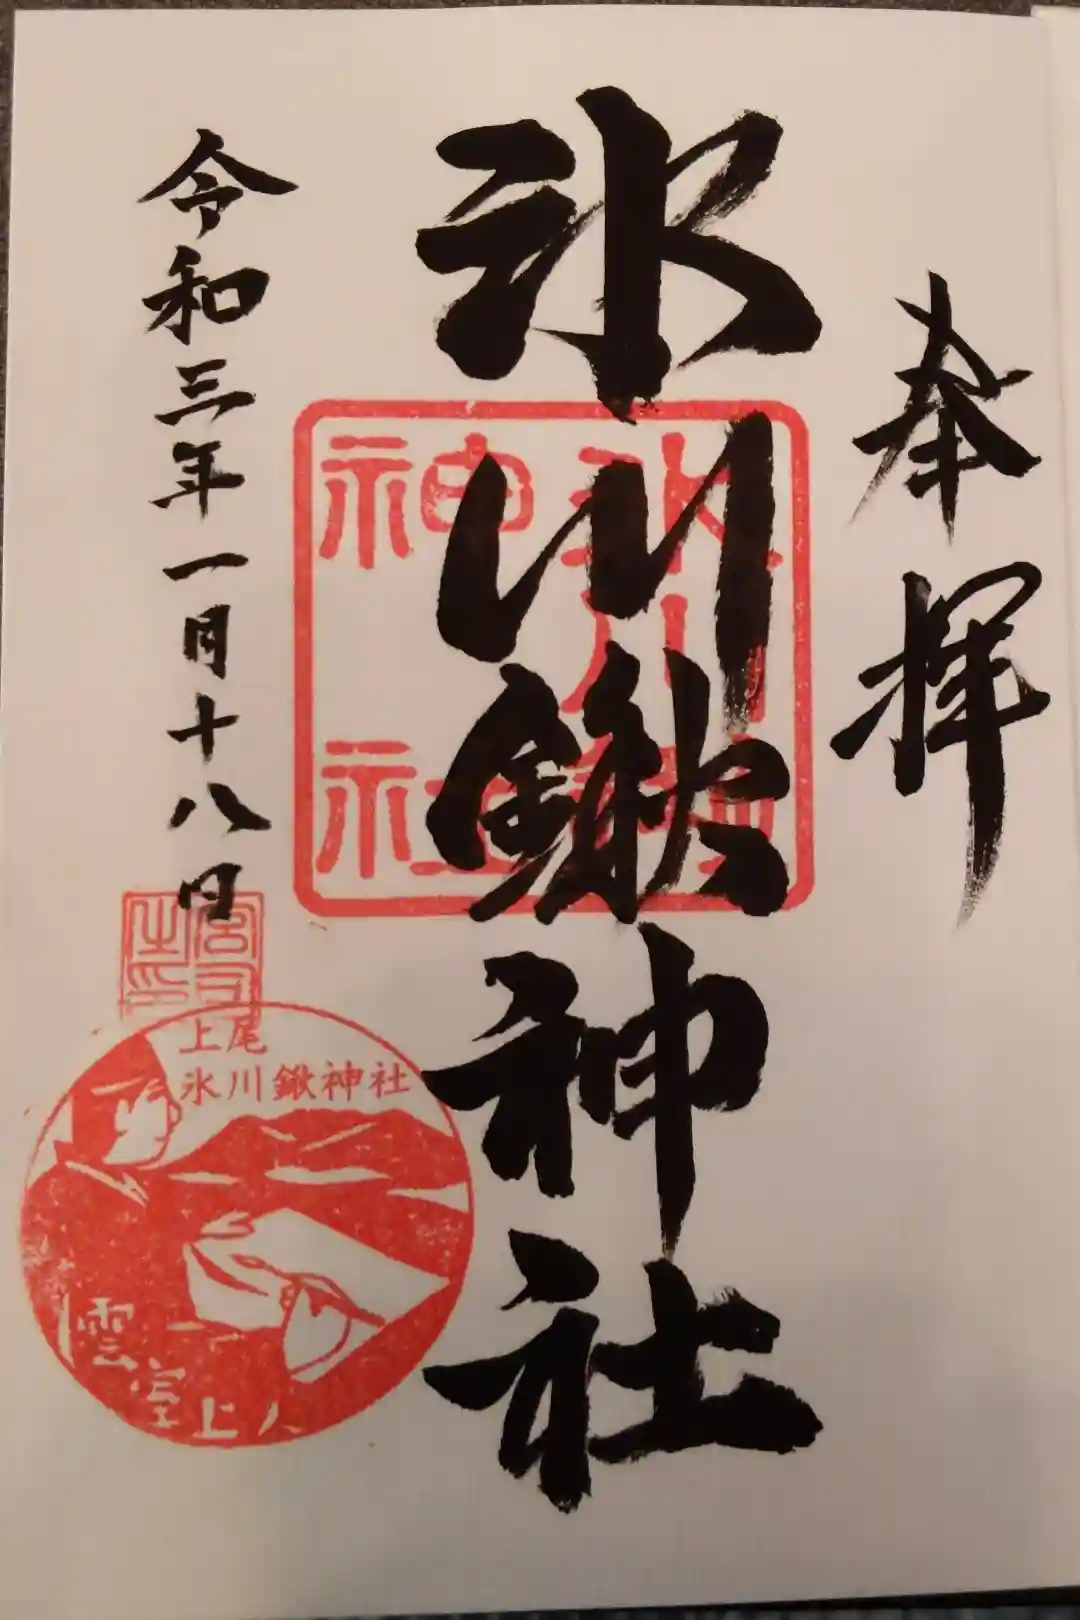 奉拝
氷川鍬神社
氷川鍬
神社
令和三年一月十八日
宮司
之印
上尾
氷川鍬神社
雲室上人